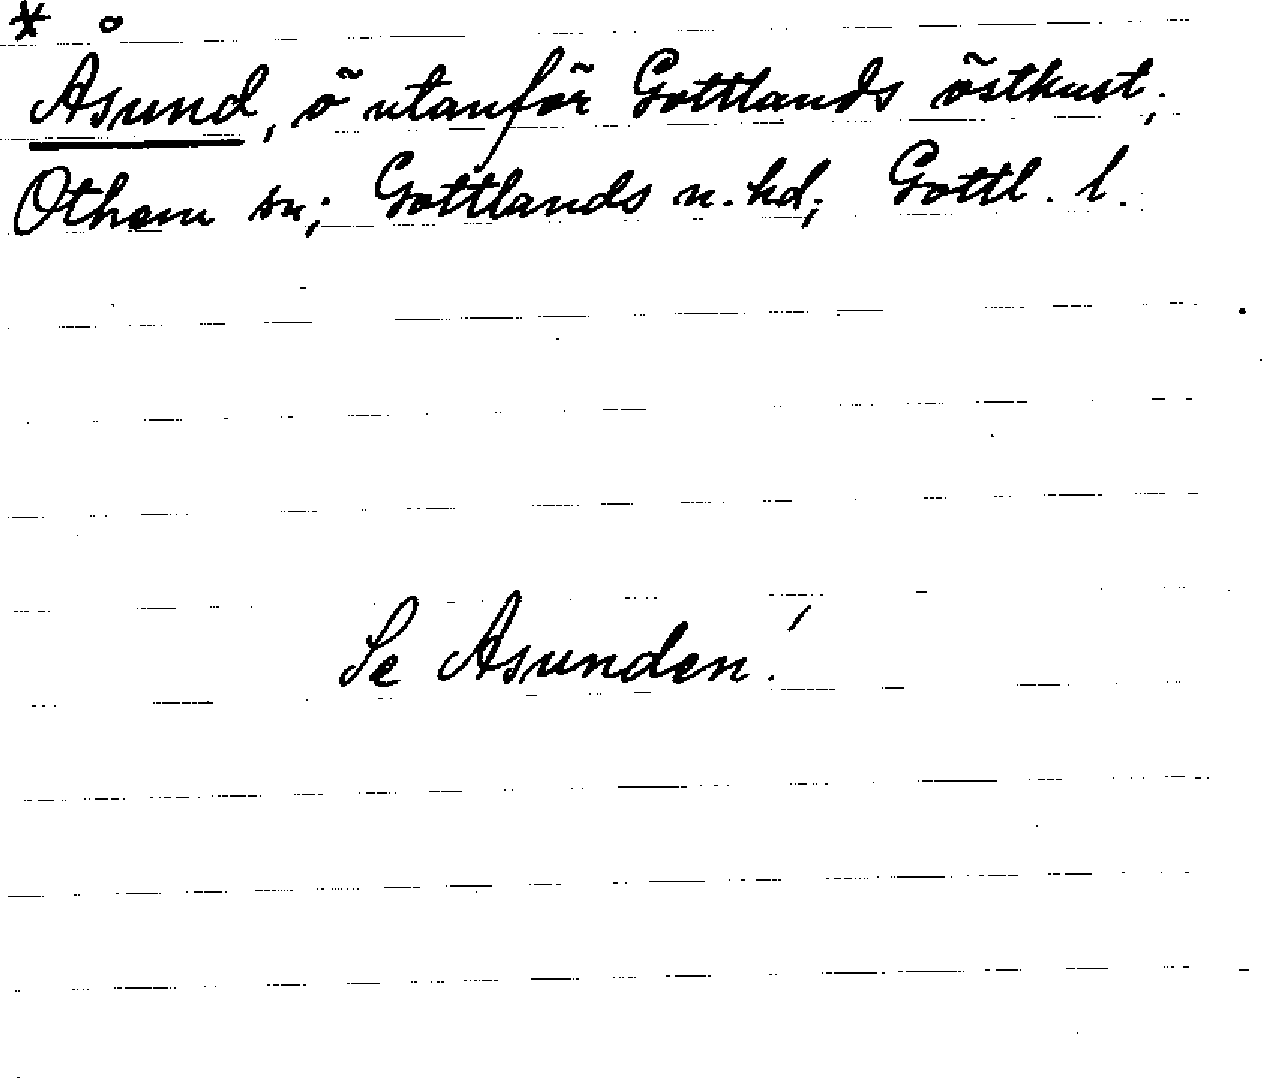 * Åsund, ö utanför Gottlands östkust;
Othem sn; Gottlands n. hd; Gottl. l.
Se Asunden!